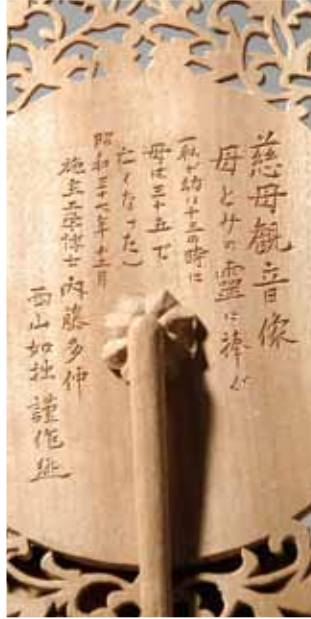 慈母観音像
母とみの靈に捧ぐ
「私が幼い十三の時に
母は三十五で
亡くなった」
昭和三十七年十二月
施主工学博士内藤多仲
西山如拙 謹作